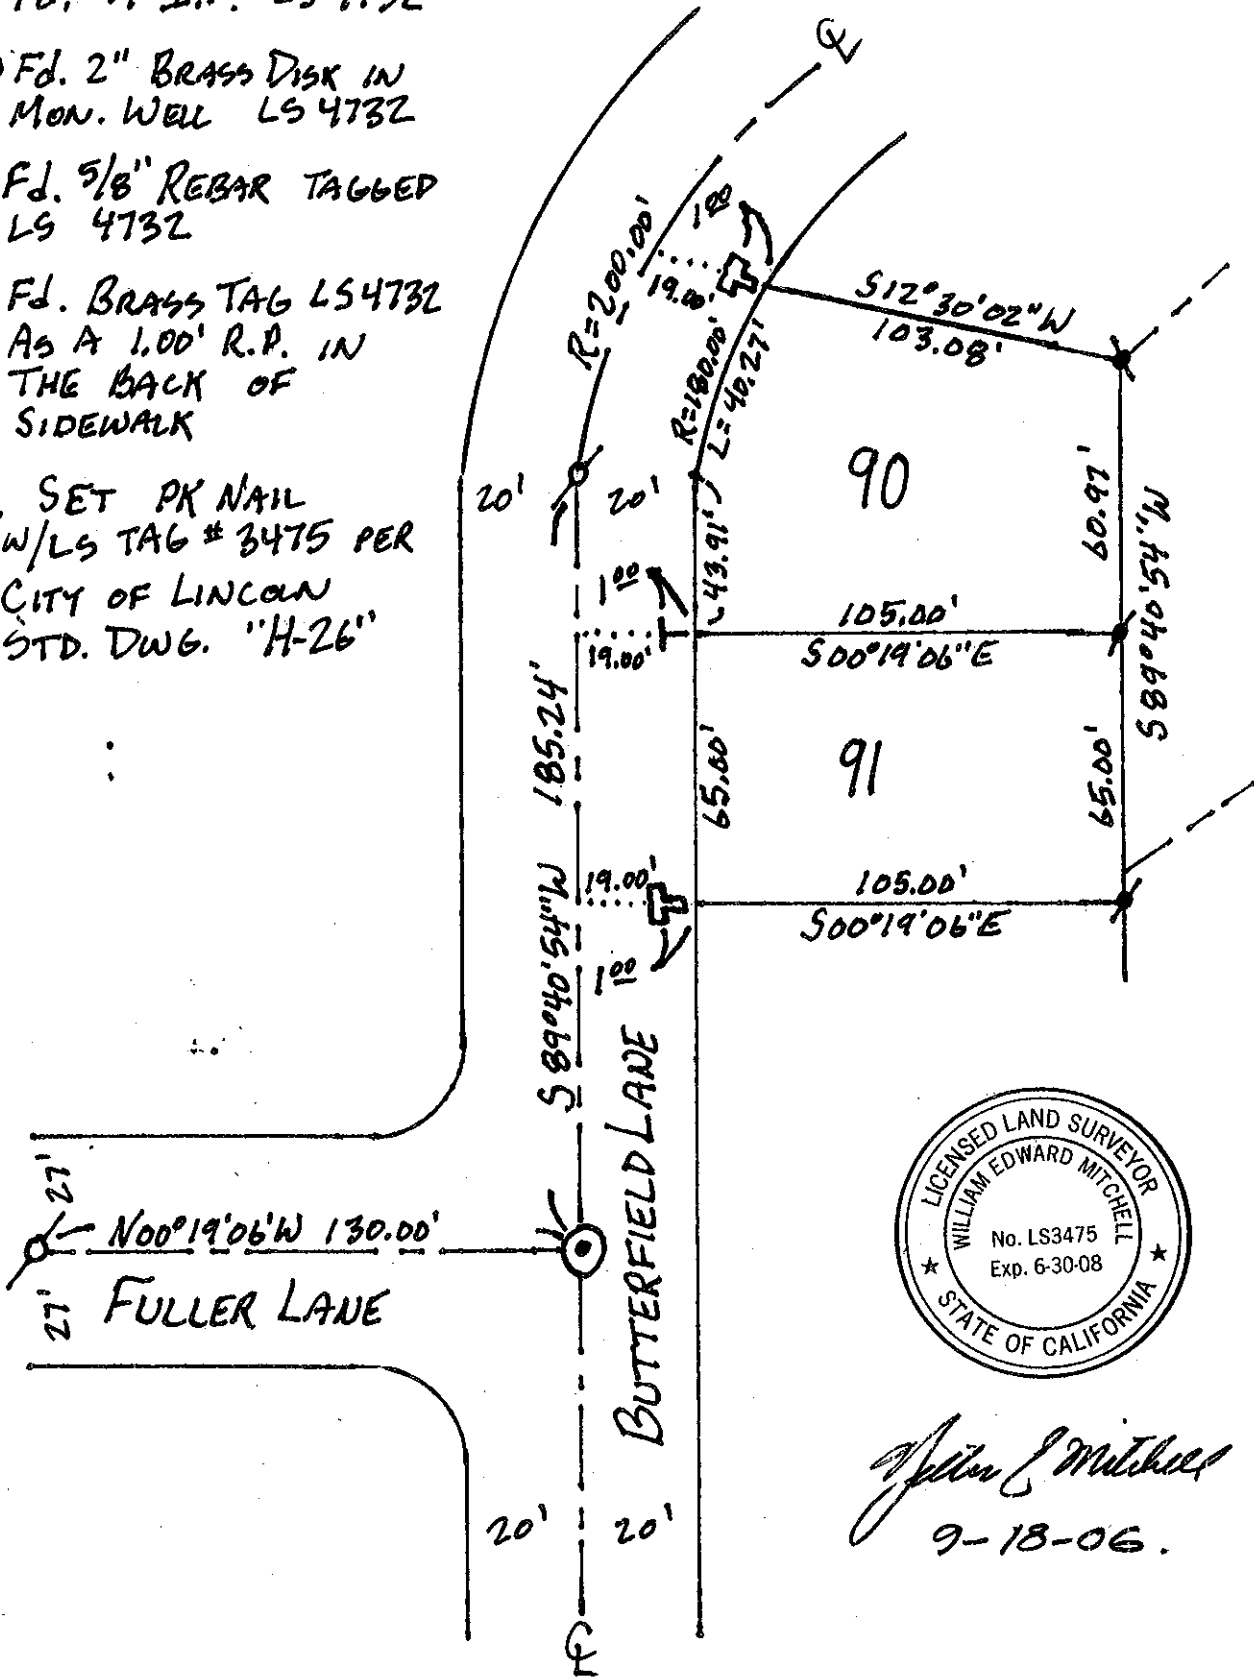 Fd. 2" BRASS DISK IN
MON. WELL LS 4732
Fd. 5/8" REBAR TAGGED
LS 4732
Fd. BRASS TAG LS4732
AS A 1.00' R.P. IN
THE BACK OF
SIDEWALK
SET PK NAIL
W/LS TAG # 3475 PER
CITY OF LINCOLN
STD. DWG. "H-26"
℄
R=200.00'
1.00
19.00'
S12°30'02"W
103.08'
R=180.00'
L=40.27'
90
60.97'
S89°40'54"W
20'
20'
43.91'
1.00
19.00'
105.00'
S00°19'06"E
185.24'
S89°40'54"W
65.00'
91
65.00'
19.00'
1.00
105.00'
S00°19'06"E
BUTTERFIELD LANE
27'
N00°19'06'W 130.00'
27'
FULLER LANE
20'
20'
℄
LICENSED LAND SURVEYOR
WILLIAM EDWARD MITCHELL
No. LS3475
Exp. 6-30-08
★ STATE OF CALIFORNIA ★
Mitchell
9-18-06.